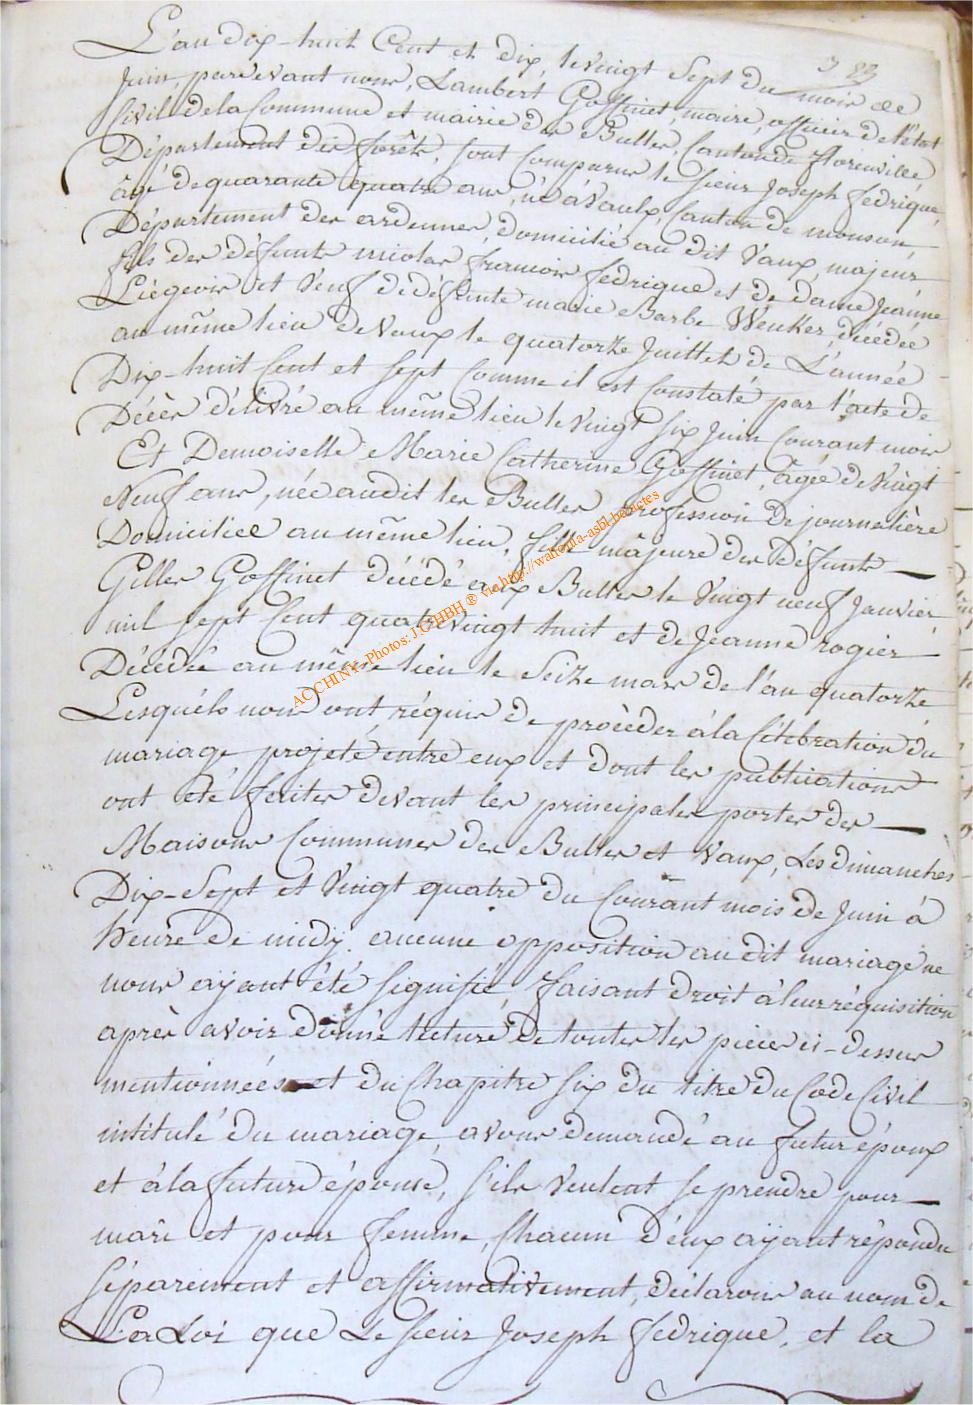 383
L'an dix-huit Cent et dix, le vingt Sept du mois de
Juin, pardevant nous, Lambert Goffinet, maire, officier de l'état
Civil de la Commune et mairie des Bulles, Canton de florenville
Département des forêts, sont Comparus le sieur Joseph fédrique,
âgé de quarante quatre ans, né à Vaulx, Canton de mouson
Département des ardennes, domicilié au dit Vaux, majeur
fils des défunts nicolas francois fédrique et de dame Jeanne
Liégeois et Veuf de défunte marie Barbe Wenker, décédée
au même lieu de Vaux le quatorze Juillet de L'année
Dix-huit Cent et sept Comme il est Constaté par l'acte de
Décès délivré au même lieu le vingt six Juin Courant mois
Et Demoiselle Marie Catherine Goffinet, âgée de Vingt
Neuf ans, née audit les Bulles profession de journalière
Domiciliée au même lieu, fille majeure des défunts
Gilles Goffinet décédé aux Bulles le Vingt neuf Janvier
mil sept Cent quatrevingt huit et de Jeanne rogier
Décédée au même lieu le Seize mars de l'an quatorze
Lesquéls nous ont réquis de procèder à la Célébration du
mariage projeté entre eux et dont les publications
ont été faites devant les principales portes des
Maisons Communes des Bulles et Vaux, Les dimanches
Dix-Sept et Vingt quatre du Courant mois de Juin à
heure de midÿ. aucune opposition au dit mariage ne
nous aÿant été signifié, faisant droit à leur réquisition
après avoir donné lecture de toutes les pièces ci-dessus
mentionnées et du Chapitre six du titre du Code Civil
intitulé du mariage, avons demandé au futur époux
et à la future épouse, s'ils veulent se prendre pour
mari et pour femme, Chacun d'eux aÿant répondu
séparement et affirmativement, déclarons au nom de
La Loi que Le sieur Joseph fédrique, et la
ACCHINY - Photos: J.C.HBH ® via http://wallonia-asbl.be/actes